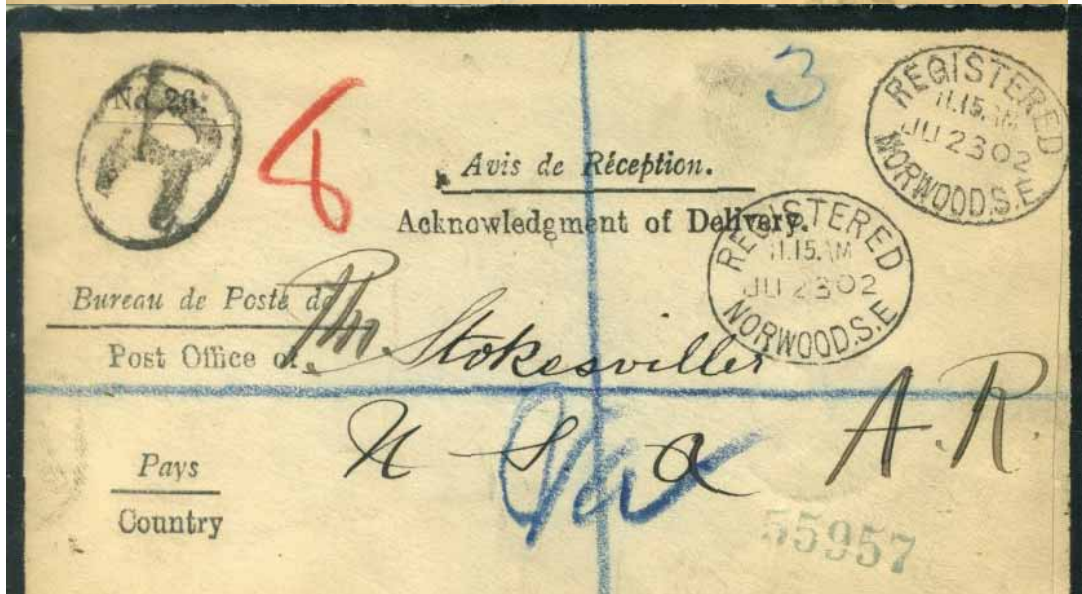 No 26.
R
8
3
REGISTERED
11.15.AM
JU 23 02
NORWOOD.S.E
Avis de Réception.
Acknowledgment of Delivery.
REGISTERED
11.15.AM
JU 23 02
NORWOOD.S.E
Bureau de Poste de
Post Office of
Stokesville
U S A
A.R.
Pays
Country
55957